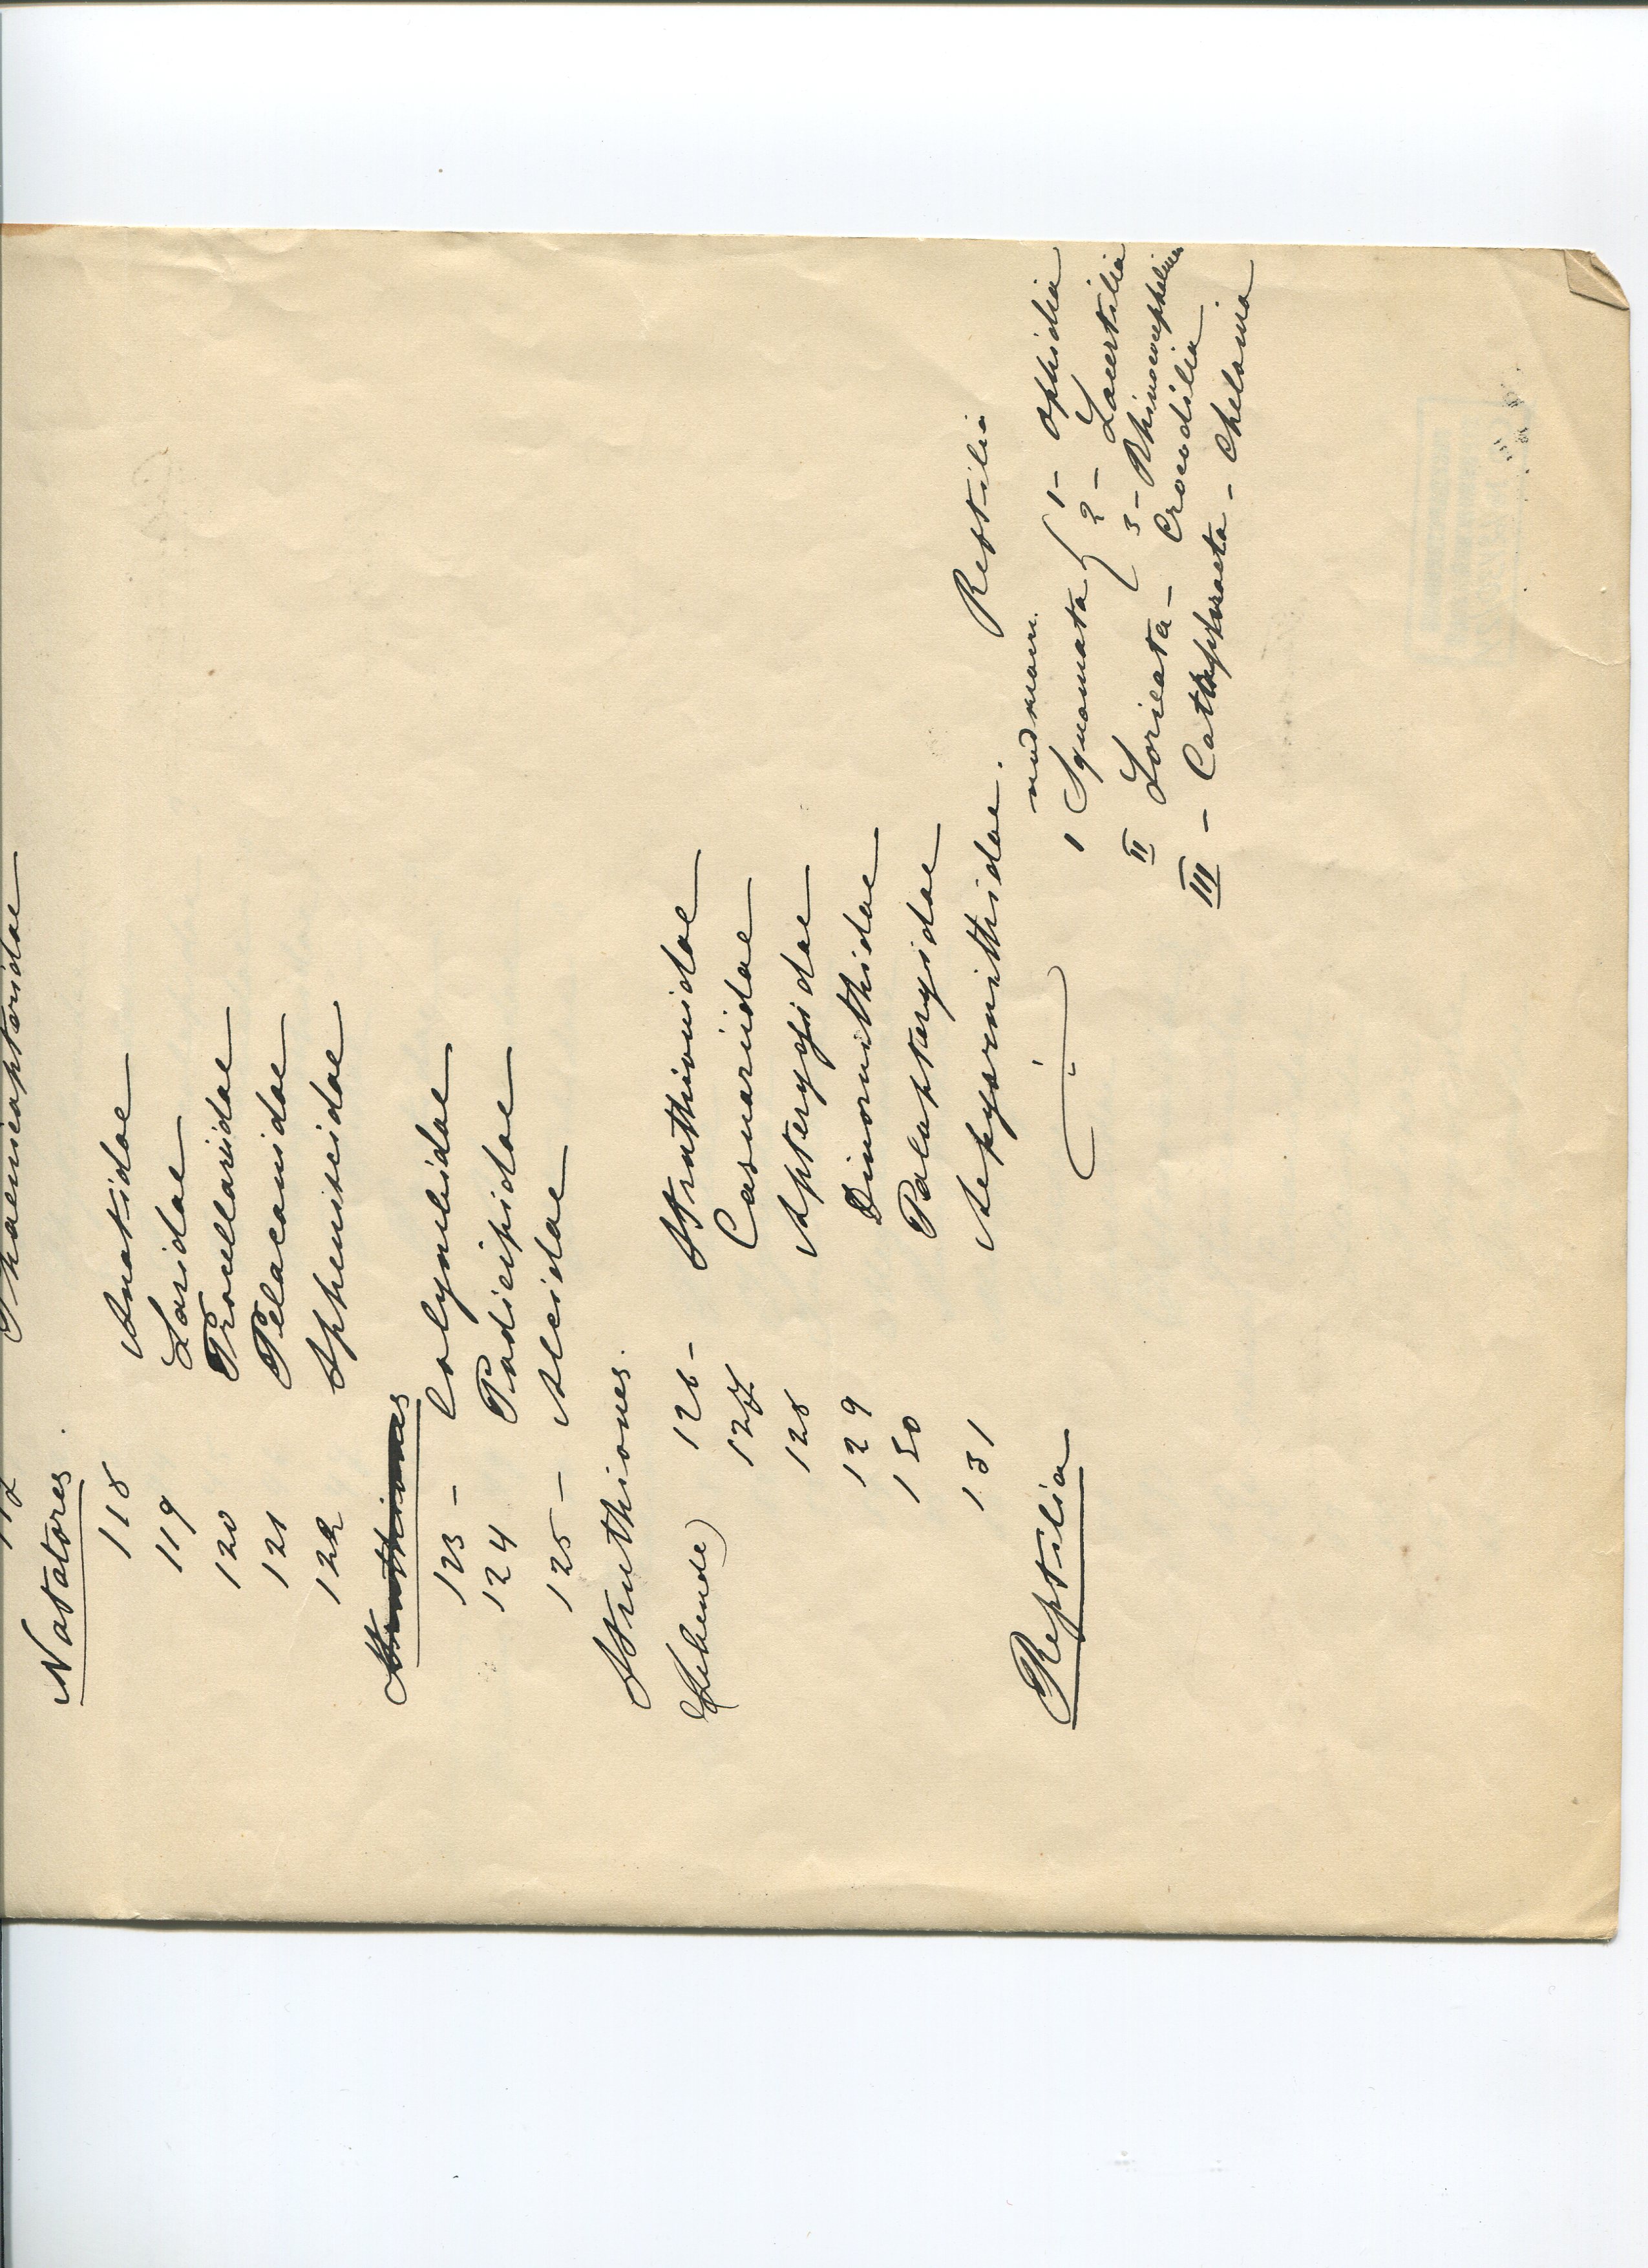 117 Phaenicopteridae
Natatores
118 Anatidae
119 Laridae
120 Procellaridae
121 Pelacanidae
122 Spheniscidae
Struthiones
123 - Colymbidae
124 Podicipidae
125 - Alcidae
Struthiones.
126 - Struthionidae
127 Casuariidae
128 Apterygidae
129 Dinornithidae
130 Palapterygidae
131 Aepyornithidae.
Reptilia
Reptilia
1 Squamata { 1 - Ophidia
2 - Lacertilia
3 - Rhincocephalina
II Loricata - Crocodilia
III - Cataphracta - Chelonia